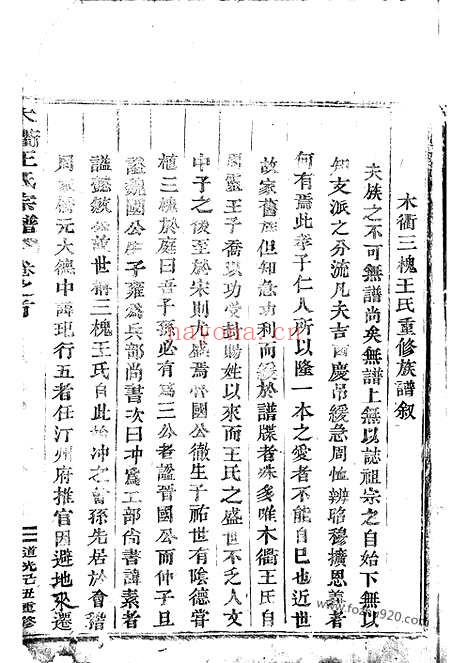 木衢三槐王氏重修族譜叙
夫族之不可無譜尚矣無譜上無以誌祖宗之自始下無以
知支派之分流凡夫吉凶慶弔緩急周恤辨昭穆擴恩義者
何有焉此孝子仁人所以隆一本之愛者不能自已也近世
故家舊族但知急功利而緩於譜牒者殊多唯木衢王氏自
周靈王子喬以功受封賜姓以來而王氏之盛世不乏人文
中子之後至於宋則尤盛焉晉國公徹生子祐世有陰德嘗
植三槐於庭曰吾子孫必有為三公者謚晉國公而仲子旦
謚魏國公生子雍為兵部尚書次曰冲為工部尚書諱素者
謚懿敏公故世稱三槐王氏自此始冲之曾孫先居於會譜
周家橋元大德中諱琨行五者任汀州府推官因避地來遷
木衢王氏宗譜 卷之首
道光己丑重修
nahuo.com
www.foxue920.com